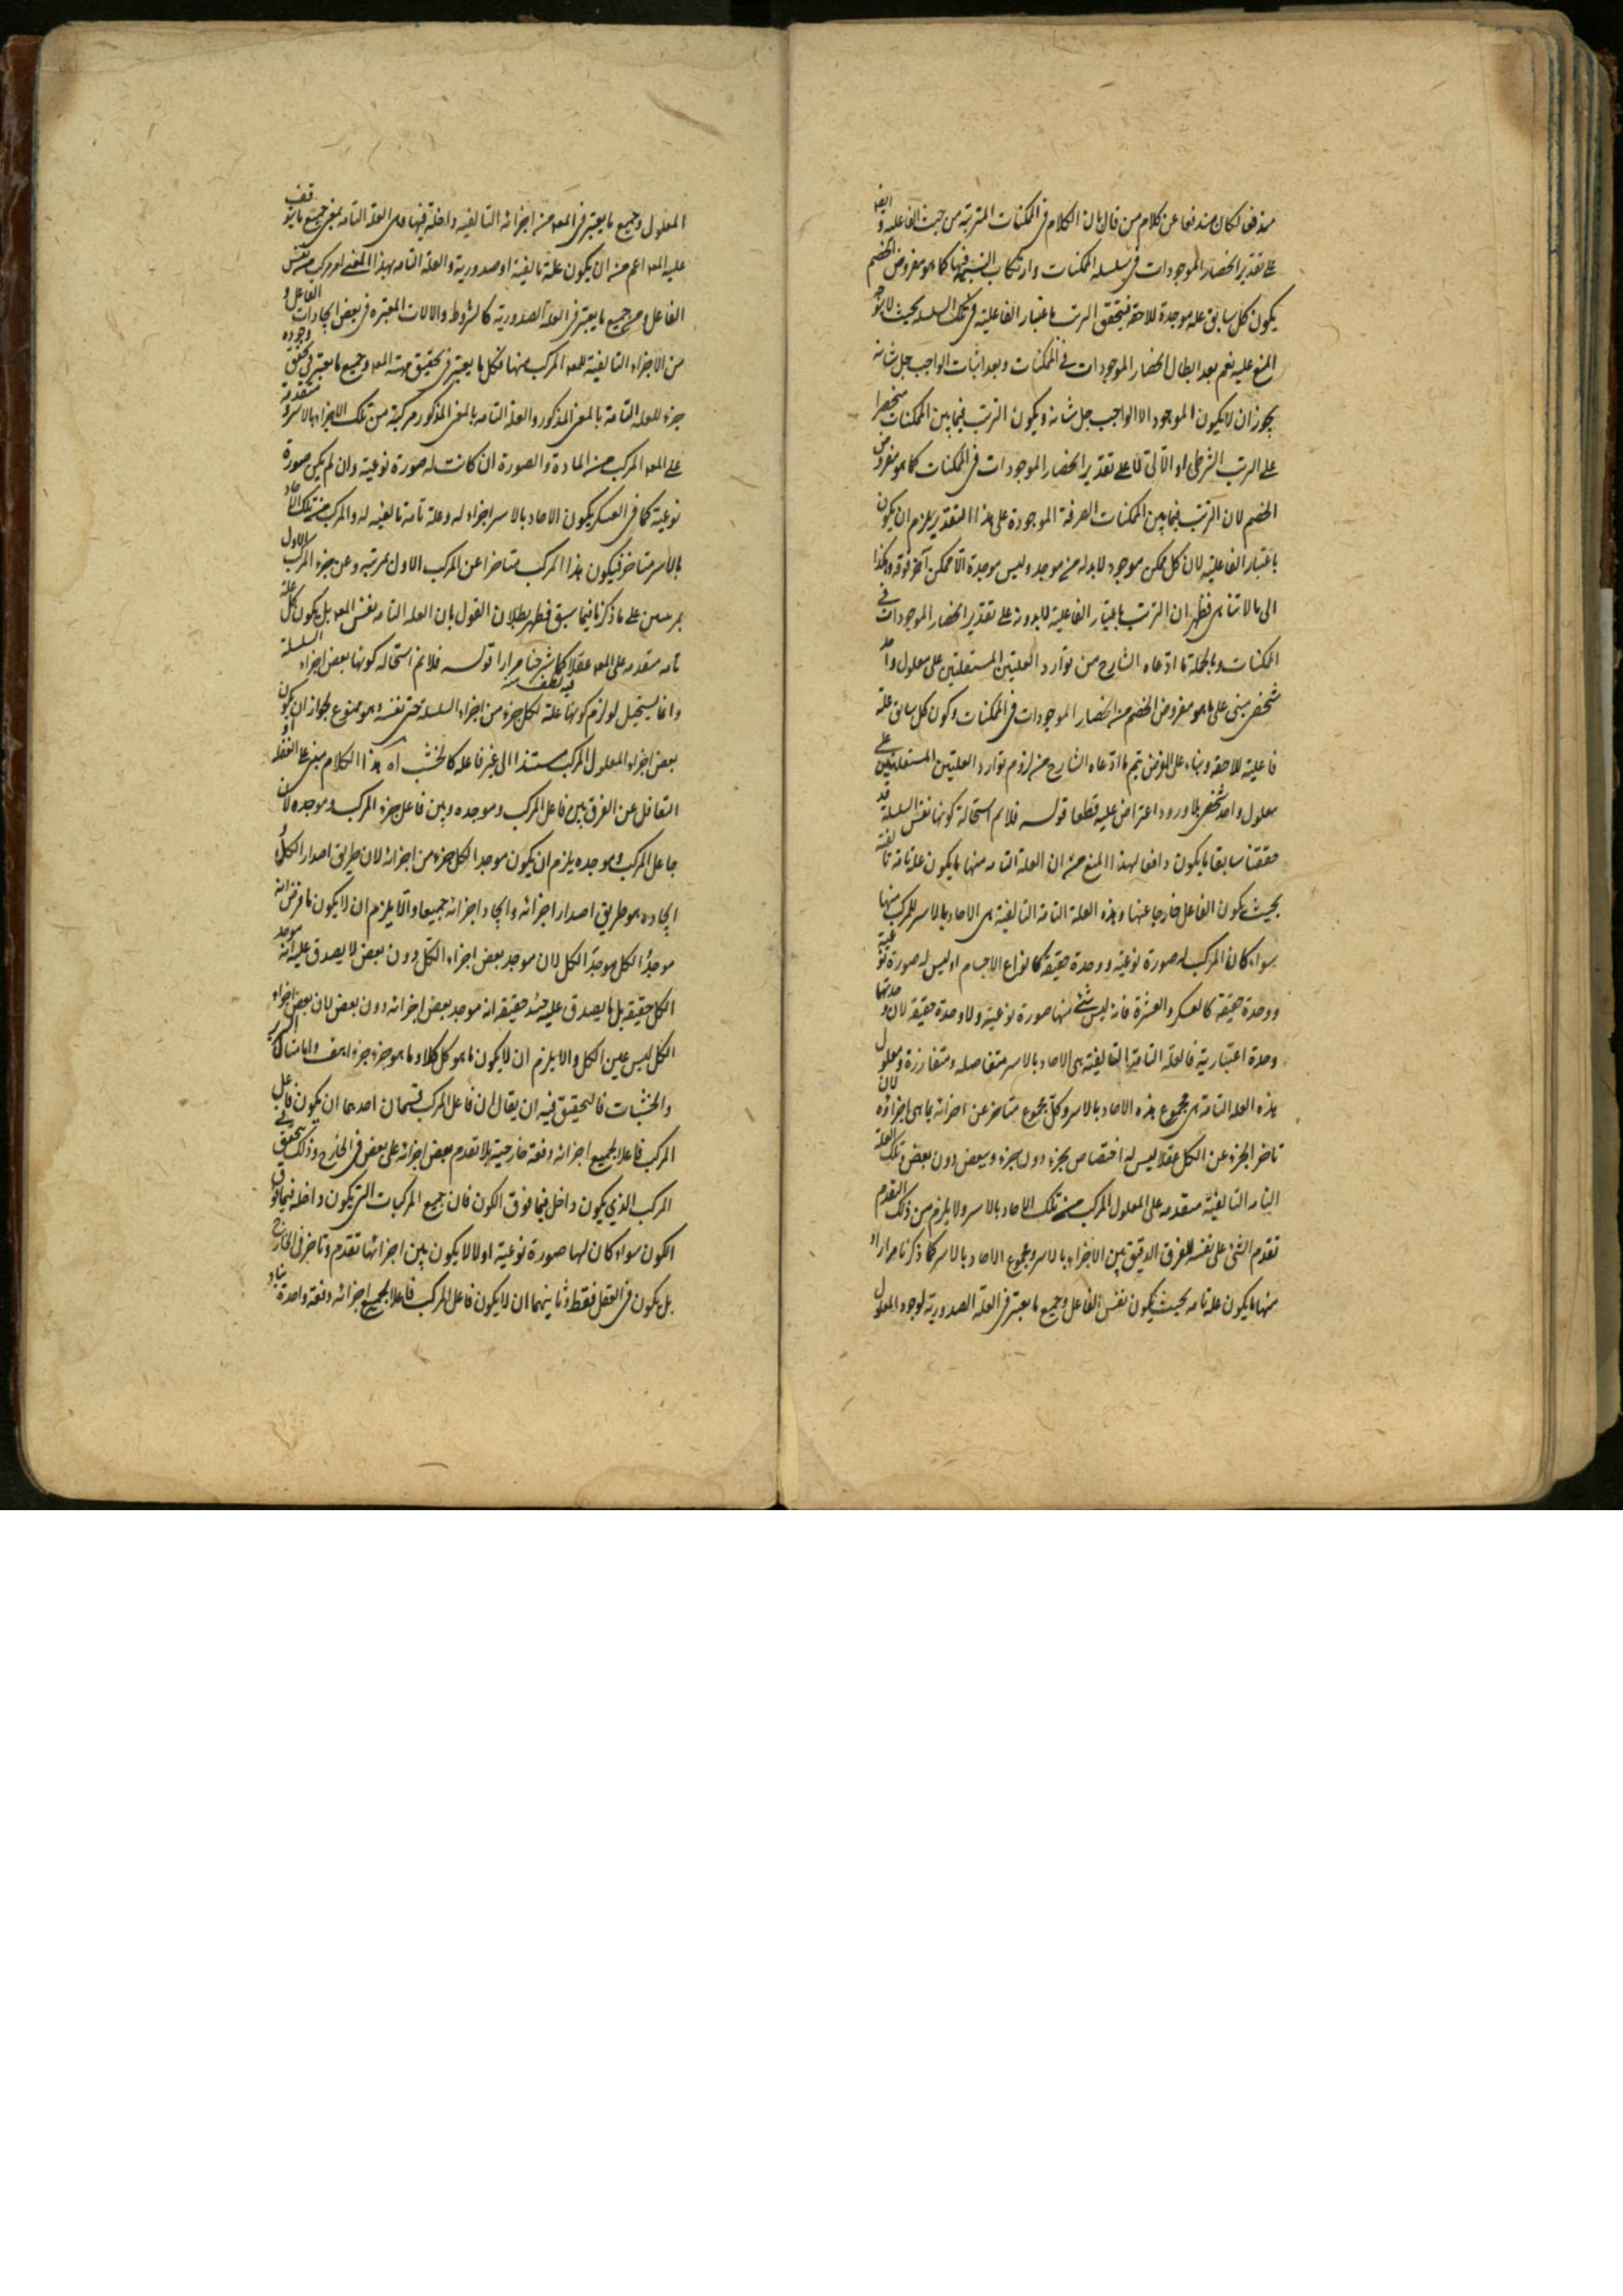 مندفعا لكان مندفعا عن كلام من قال بان الكلام في الممكنات المترتبة من حيث الفاعلية و
على تقدير انحصار الموجودات في سلسلة الممكنات وارتكاب فيها كما هو مفروض الخصم
يكون كل سابق علة موجدة للاحقه فيتحقق الترتب باعتبار الفاعلية في تلك السلسلة بحيث لا يتوجه
المنع عليه نعم بعد ابطال انحصار الموجودات في الممكنات وبعد اثبات الواجب جل شانه
يجوز ان لا يكون الموجد الا الواجب جل شانه ويكون الترتب فيما بين الممكنات منحصرا
على الترتب الشرطي او الآلي لا على تقدير انحصار الموجودات في الممكنات كما هو مفروض
الخصم لان الترتب فيما بين الممكنات الصرفة الموجودة على هذا التقدير يلزم ان يكون
باعتبار الفاعلية لان كل ممكن موجود لابد له من موجد وليس موجده الا ممكن آخر فوقه وهكذا
الى ما لا يتناهى فظهر ان الترتب باعتبار الفاعلية لابد منه على تقدير انحصار الموجودات في
الممكنات وبالجملة ما ادعاه الشارح من توارد العلتين المستقلتين على معلول واحد
شخصي مبني على ما هو مفروض الخصم من انحصار الموجودات في الممكنات وكون كل سابق علة
فاعلية للاحقه وبناء على الفرض تيم ما ادعاه الشارح من لزوم توارد العلتين المستقلتين على
معلول واحد شخصي بلا ورود اعتراض عليه قطعا قوله فلانم استحالة كونها نفس السلسلة قد
حققنا سابقا ما يكون دافعا لهذا المنع من ان العلة التامه منها ما يكون علة تامة تاليفية
بحيث يكون الفاعل خارجا عنها وهذه العلة التامة التاليفية هى الاحاد بالاسر للمركب منها
سواء كان المركب له صورة نوعية ووحدة حقيقة كانواع الاجسام او ليس له صورة نوعية
ووحدة حقيقة كالعسكر والعشرة فانه ليس شئ منها صورة نوعية ولا وحدة حقيقة لان وحدتها
وحدة اعتبارية فالعلة التامة التاليفية هى الاحاد بالاسر متفاصلة ومتفارزة ومعلول
هذه العلة التامة هى مجموع هذه الاحاد بالاسر وكل مجموع متاخر عن اجزائه بما هى اجزاؤه لان
تاخر الجزء عن الكل عقلا ليس له اختصاص بجزء دون جزء وببعض دون بعض وتلك العلة
التامه التاليفية متقدمه على المعلول المركب من تلك الاحاد بالاسر ولا يلزم من ذلك التقدم
تقدم الشئ على نفسه للفرق الدقيق بين الاجزاء بالاسر ومجموع الاحاد بالاسر كما ذكرنا مرارا و
منها ما يكون علة تامه بحيث يكون نفس الفاعل وجميع ما يعتبر في العلة الصدورية لوجود المعلول
المعلول وجميع ما يعتبر في المعه من اجزائه التاليفيه داخلة فيها وهى العلة التامه بمعنى جميع ما يتوقف
عليه المعه اعم من ان يكون علة تاليفية او صدورية والعلة التامه بهذا المعنى امر مركب من نفس
الفاعل وجميع ما يعتبر في العلة الصدورية كالشروط والالات المعتبره في بعض ايجادات الفاعل و
من الاجزاء التاليفية للمعه المركب منها فكل ما يعتبر في تحقيق مهية المعه وجميع ما يعتبر في تحقق وجوده
جزء للعلة التامة بالمعنى المذكور والعلة التامه بالمعنى المذكور مركبة من تلك الاجزاء بالاسر ومتقدمة
على المعه المركب من المادة والصورة ان كانت له صورة نوعية وان لم يكن صورة
نوعية كما في العسكر يكون الاحاد بالاسر اجزاء له وعلة تامة تاليفيه له والمركب من تلك الاحاد
بالاسر متاخر فيكون هذا المركب متاخرا عن المركب الاول بمرتبه وعن جزء المركب الاول
بمرتبتين على ما ذكرنا فيما سبق فظهر بطلان القول بان العلة التامه نفس المعه بل يكون كل علة
تامه متقدمه على المعه عقلا كما شرحنا مرارا قوله فلانم استحاله كونها بعض اجزاء السلسلة
وانما يستحيل لو لزم كونها علة لكل جزء من اجزاء السلسلة حتى نفسه وهو ممنوع لجواز ان يكون
بعض اجزاء المعلول المركب مستندا الى غير فاعله كالخشب اه هذا الكلام مبنى على الغفلة او
التغافل عن الفرق بين فاعل المركب وموجده وبين فاعل جزء المركب وموجده لان
جاعل المركب وموجده يلزم ان يكون موجدا لكل جزء من اجزائه لان طريق اصدار الكل و
ايجاده هو طريق اصدار اجزائه وايجاد اجزائه جميعا والا يلزم ان لا يكون ما فرض انه
موجد الكل موجد الكل لان موجد بعض اجزاء الكل دون بعض لا يصدق عليه انه موجد
الكل حقيقة بل ما يصدق عليه حينئذ حقيقة انه موجد بعض اجزائه دون بعض لان بعض اجزاء
الكل ليس عين الكل والا يلزم ان لا يكون ما هو كل كلا وما هو جزء جزءا هف واما مثال السرير
والخشبات فالتحقيق فيه ان يقال ان فاعل المركب قسمان احدهما ان يكون فاعل
المركب فاعلا لجميع اجزائه دفعة خارجية بلا تقدم بعض اجزائه على بعض في الخارج وذلك يتحقق في
المركب الذي يكون داخل فيما فوق الكون فان جميع المركبات التي يكون داخله فيما فوق
الكون سواء كان لها صورة نوعية او لا لا يكون بين اجزائها تقدم وتاخر في الخارج
بل يكون في العقل فقط وثانيهما ان لا يكون فاعل المركب فاعلا لجميع اجزائه دفعة واحدة